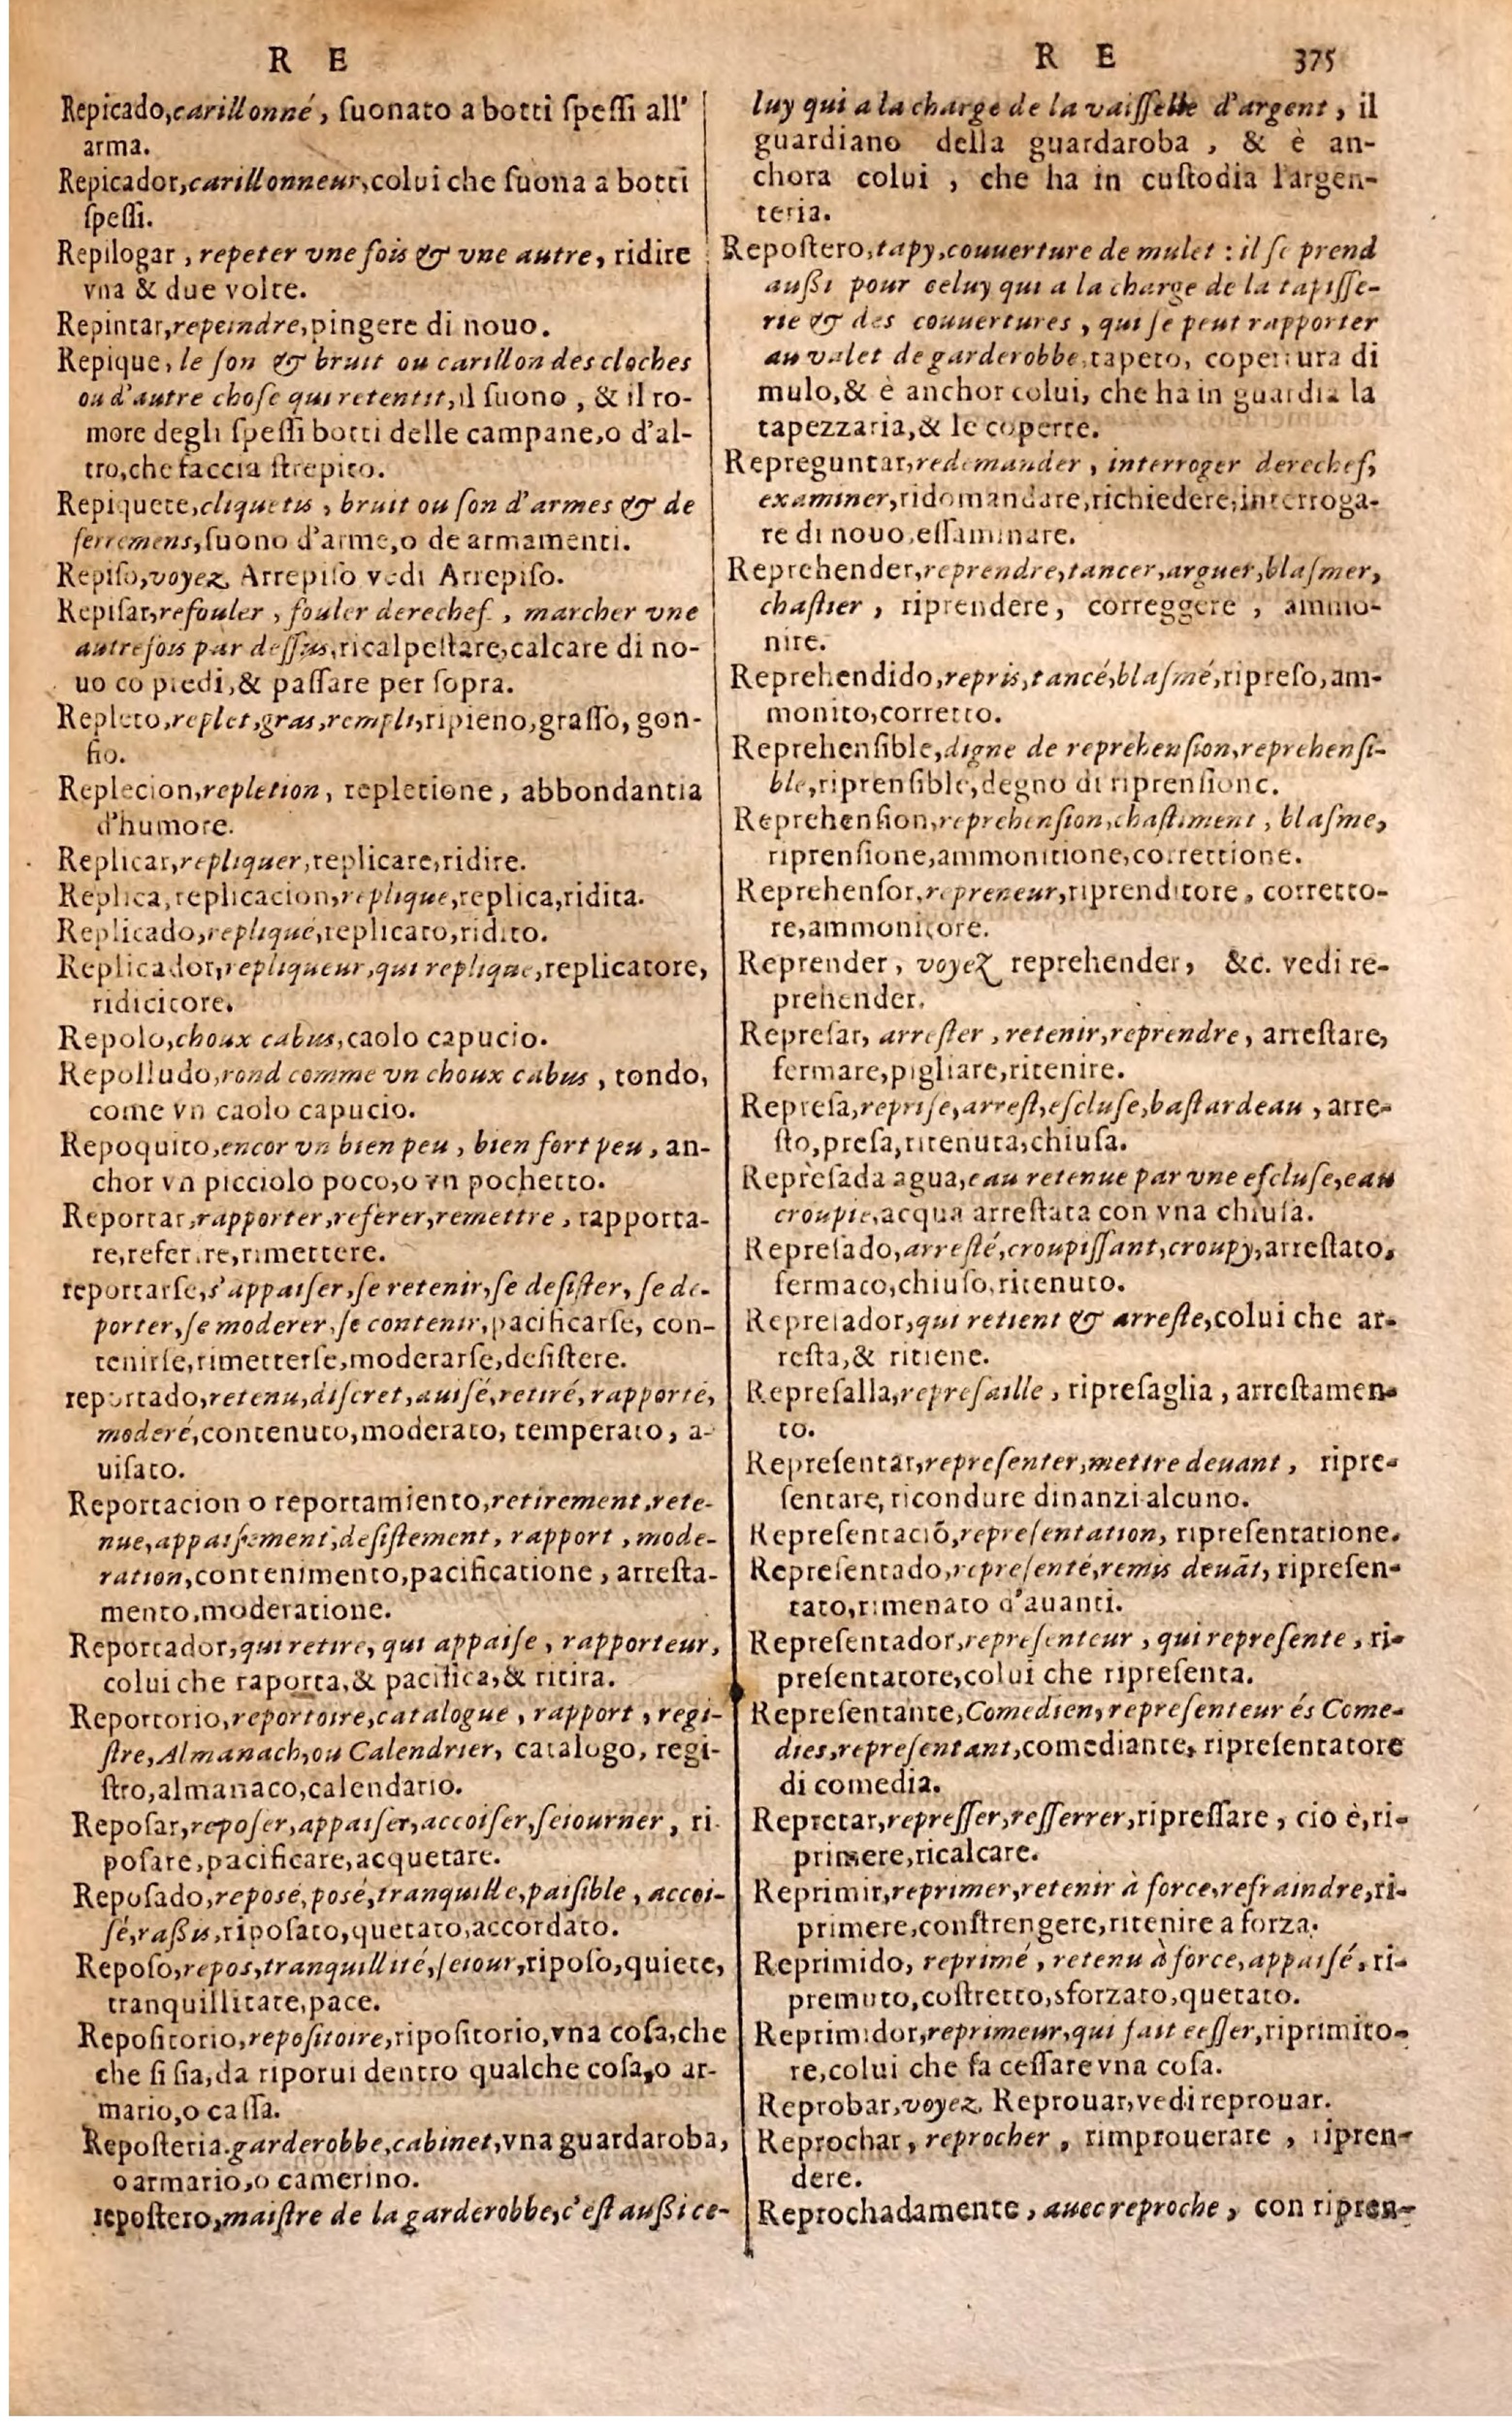 R E
Repicado,carillonné, ſuonato a botti ſpeſſi all'
arma.
Repicador,carillonneur,colui che ſuona a botti
ſpeſſi.
Repilogar, repeter vne fois & vne autre, ridire
vna & due volte.
Repintar,repeindre,pingere di nouo.
Repique, le ſon & bruit ou carillon des cloches
ou d'autre choſe qui retentit,il ſuono, & il ro-
more degli ſpeſſi botti delle campane,o d'al-
tro,che faccia ſtrepito.
Repiquete,cliquetis, bruit ou ſon d'armes & de
ferremens,ſuono d'arme,o de armamenti.
Repiſo,voyez Arrepiſo vedi Arrepiſo.
Repiſar,refouler, fouler derechef, marcher vne
autrefois par deſſus,ricalpeſtare,calcare di no-
uo co piedi,& paſſare per ſopra.
Repleto,replet,gras,rempli,ripieno,graſſo, gon-
fio.
Replecion,repletion, repletione, abbondantia
d'humore.
Replicar,repliquer,replicare,ridire.
Replica,replicacion,replique,replica,ridita.
Replicado,repliqué,replicato,ridito.
Replicador,repliqueur,qui replique,replicatore,
ridicitore.
Repolo,choux cabus,caolo capucio.
Repolludo,rond comme vn choux cabus, tondo,
come vn caolo capucio.
Repoquito,encor vn bien peu, bien fort peu, an-
chor vn picciolo poco,o vn pochetto.
Reportar,rapporter,referer,remettre, rapporta-
re,referire,rimettere.
reportarſe,s'appaiſer,ſe retenir,ſe deſiſter, ſe de-
porter,ſe moderer,ſe contenir,pacificarſe, con-
tenirſe,rimetterſe,moderarſe,deſiſtere.
reportado,retenu,diſcret,auiſé,retiré,rapporté,
moderé,contenuto,moderato, temperato, a-
uiſato.
Reportacion o reportamiento,retirement,rete-
nue,appaiſement,deſiſtement, rapport, mode-
ration,contenimento,pacificatione, arreſta-
mento,moderatione.
Reportador,qui retire, qui appaiſe, rapporteur,
colui che raporta,& pacifica,& ritira.
Reportorio,reportoire,catalogue, rapport, regi-
ſtre,Almanach,ou Calendrier, catalogo, regi-
ſtro,almanaco,calendario.
Repoſar,repoſer,appaiſer,accoiſer,ſeiourner, ri-
poſare,pacificare,acquetare.
Repoſado,repoſé,poſé,tranquille,paiſible, accoi-
ſé,raßis,ripoſato,quetato,accordato.
Repoſo,repos,tranquillité,ſeiour,ripoſo,quiete,
tranquillitate,pace.
Repoſitorio,repoſitoire,ripoſitorio,vna coſa,che
che ſi ſia,da riporui dentro qualche coſa,o ar-
mario,o caſſa.
Repoſteria.garderobbe,cabinet,vna guardaroba,
o armario,o camerino.
repoſtero,maiſtre de la garderobbe,c'eſt außi ce-
R E 375
luy qui a la charge de la vaiſſelle d'argent, il
guardiano della guardaroba, & è an-
chora colui, che ha in cuſtodia l'argen-
teria.
Repoſtero,tapy,couuerture de mulet : il ſe prend
außi pour celuy qui a la charge de la tapiſſe-
rie & des couuertures, qui ſe peut rapporter
au valet de garderobbe,tapeto, copertura di
mulo,& è anchor colui, che ha in guardia la
tapezzaria,& le coperte.
Repreguntar,redemander, interroger derechef,
examiner,ridomandare,richiedere,interroga-
re di nouo,eſſaminare.
Reprehender,reprendre,tancer,arguer,blaſmer,
chaſtier, riprendere, correggere, ammo-
nire.
Reprehendido,repris,tancé,blaſmé,ripreſo,am-
monito,corretto.
Reprehenſible,digne de reprehenſion,reprehenſi-
ble,riprenſible,degno di riprenſione.
Reprehenſion,reprehenſion,chaſtiment, blaſme,
riprenſione,ammonitione,correttione.
Reprehenſor,repreneur,riprenditore, corretto-
re,ammonitore.
Reprender, voyez reprehender, &c. vedi re-
prehender.
Repreſar, arreſter, retenir,reprendre, arreſtare,
fermare,pigliare,ritenire.
Repreſa,repriſe,arreſt,eſcluſe,baſtardeau, arre-
ſto,preſa,ritenuta,chiuſa.
Repreſada agua,eau retenue par vne eſcluſe,eau
croupie,acqua arreſtata con vna chiuſa.
Repreſado,arreſté,croupiſſant,croupy,arreſtato,
fermato,chiuſo,ritenuto.
Repreſador,qui retient & arreſte,colui che ar-
reſta,& ritiene.
Repreſalla,repreſaille, ripreſaglia, arreſtamen-
to.
Repreſentar,repreſenter,mettre deuant, ripre-
ſentare, ricondure dinanzi alcuno.
Repreſentaciõ,repreſentation, ripreſentatione.
Repreſentado,repreſenté,remis deuãt, ripreſen-
tato,rimenato d'auanti.
Repreſentador,repreſenteur, qui repreſente, ri-
preſentatore,colui che ripreſenta.
Repreſentante,Comedien,repreſenteur és Come-
dies,repreſentant,comediante, ripreſentatore
di comedia.
Repretar,repreſſer,reſſerrer,ripreſſare, cio è,ri-
primere,ricalcare.
Reprimir,reprimer,retenir à force,refraindre,ri-
primere,conſtrengere,ritenire a forza.
Reprimido, reprimé, retenu à force,appaiſé, ri-
premuto,coſtretto,sforzato,quetato.
Reprimidor,reprimeur,qui fait ceſſer,riprimito-
re,colui che fa ceſſare vna coſa.
Reprobar,voyez Reprouar,vedi reprouar.
Reprochar, reprocher, rimprouerare, ripren-
dere.
Reprochadamente, auec reproche, con ripren-